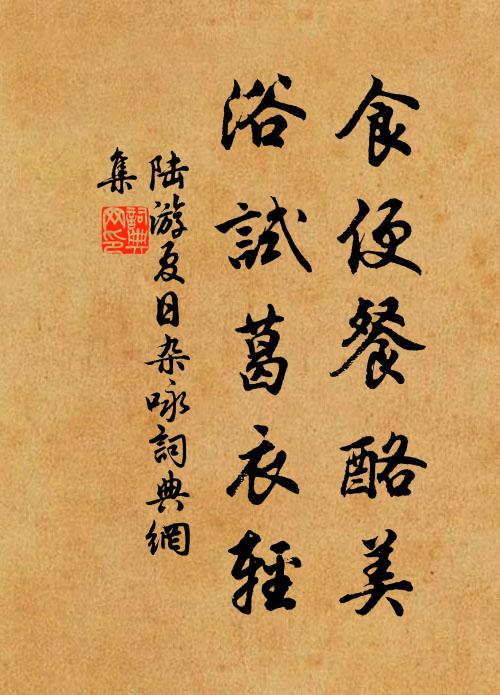 食便餐酪美
浴試葛衣輕
陆游夏日杂咏詞典網
集
詞典
网印